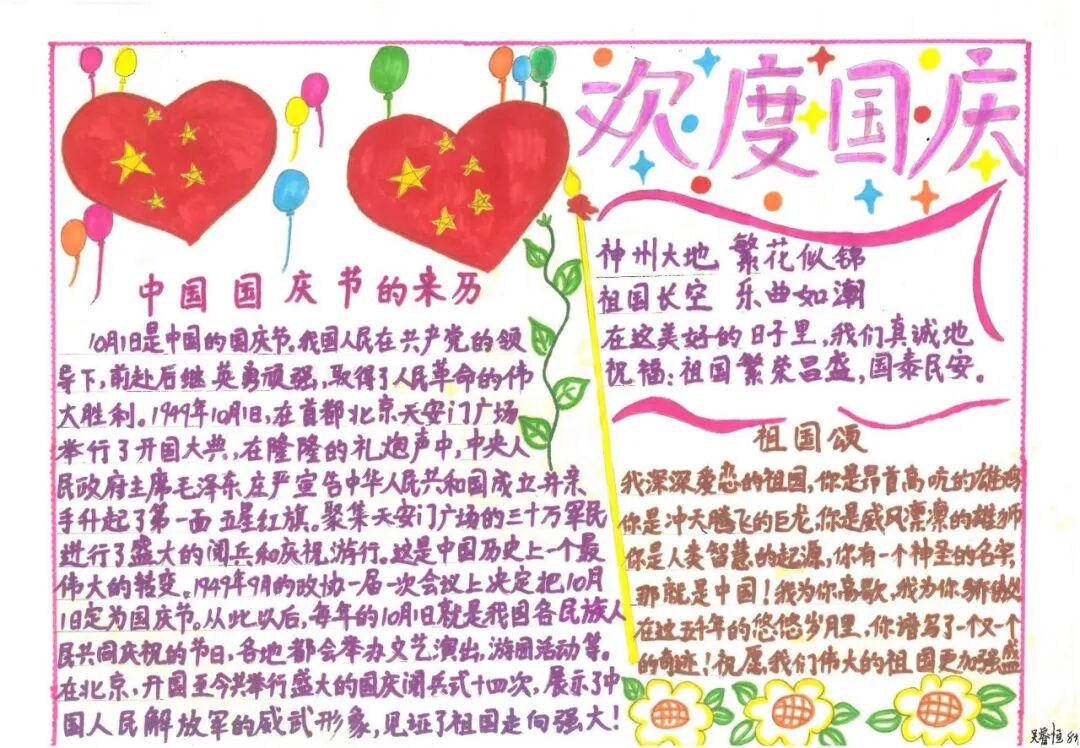 欢度国庆
中国国庆节的来历
10月1日是中国的国庆节。我国人民在共产党的领
导下,前赴后继英勇顽强,取得了人民革命的伟
大胜利。1949年10月1日,在首都北京天安门广场
举行了开国大典,在隆隆的礼炮声中,中央人
民政府主席毛泽东庄严宣告中华人民共和国成立并亲
手升起了第一面五星红旗。聚集天安门广场的三十万军民
进行了盛大的阅兵和庆祝游行。这是中国历史上一个最
伟大的转变。1949年9月的政协一届一次会议上决定把10月
1日定为国庆节。从此以后,每年的10月1日就是我国各民族人
民共同庆祝的节日,各地都会举办文艺演出,游园活动等。
在北京,开国至今共举行盛大的国庆阅兵式十四次,展示了中
国人民解放军的威武形象,见证了祖国走向强大!
神州大地 繁花似锦
祖国长空 乐曲如潮
在这美好的日子里,我们真诚地
祝福:祖国繁荣昌盛,国泰民安。
祖国颂
我深深爱恋的祖国,你是昂首高吭的雄鸡
你是冲天腾飞的巨龙,你是威风凛凛的雄狮
你是人类智慧的起源,你有一个神圣的名字,
那就是中国!我为你高歌,我为你骄傲
在这五千年的悠悠岁月里,你谱写了一个又一个
的奇迹!祝愿我们伟大的祖国更加强盛